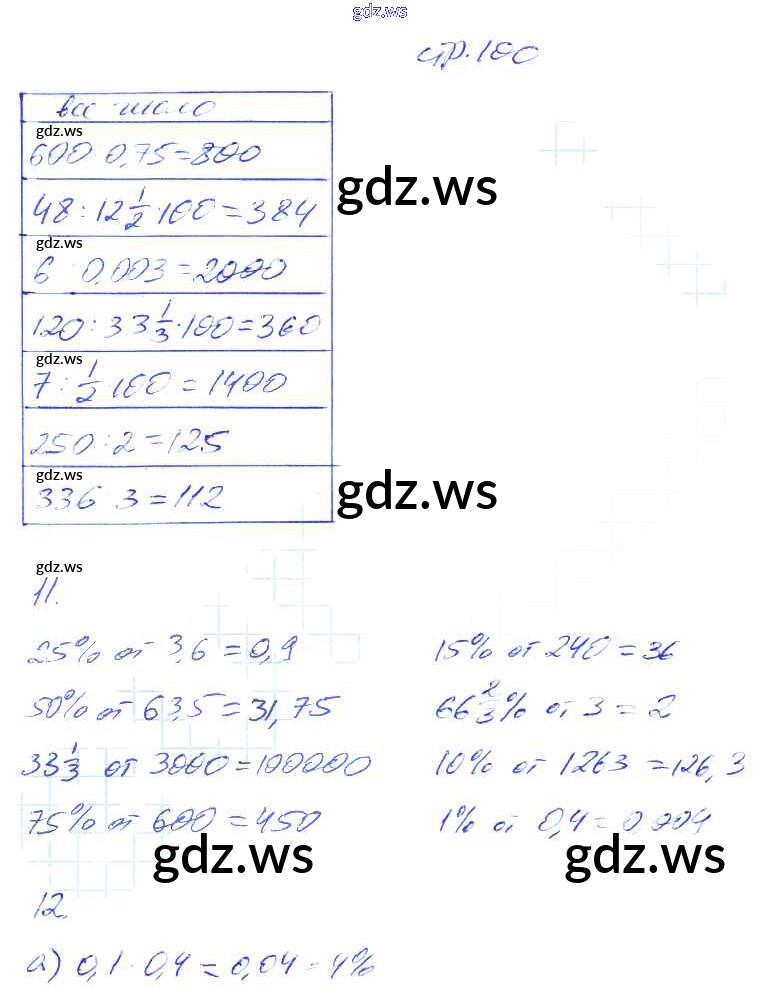 gdz.ws
стр. 100
все число
gdz.ws
600 0,75 = 800
gdz.ws
48 : 12 1/2 · 100 = 384
gdz.ws
6 0,003 = 2000
120 : 33 1/3 · 100 = 360
gdz.ws
7 : 1/2 · 100 = 1400
250 : 2 = 125
gdz.ws
gdz.ws
336 3 = 112
gdz.ws
11.
25% от 3,6 = 0,9
15% от 240 = 36
50% от 63,5 = 31,75
66 2/3% от 3 = 2
33 1/3 от 3000 = 100000
10% от 1263 = 126,3
75% от 600 = 450
1% от 0,4 = 0,004
gdz.ws
gdz.ws
12.
а) 0,1 · 0,4 = 0,04 = 4%